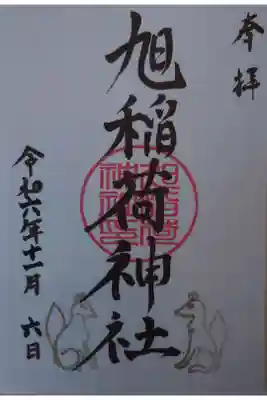 奉拝
旭稲荷神社
令和六年十一月六日